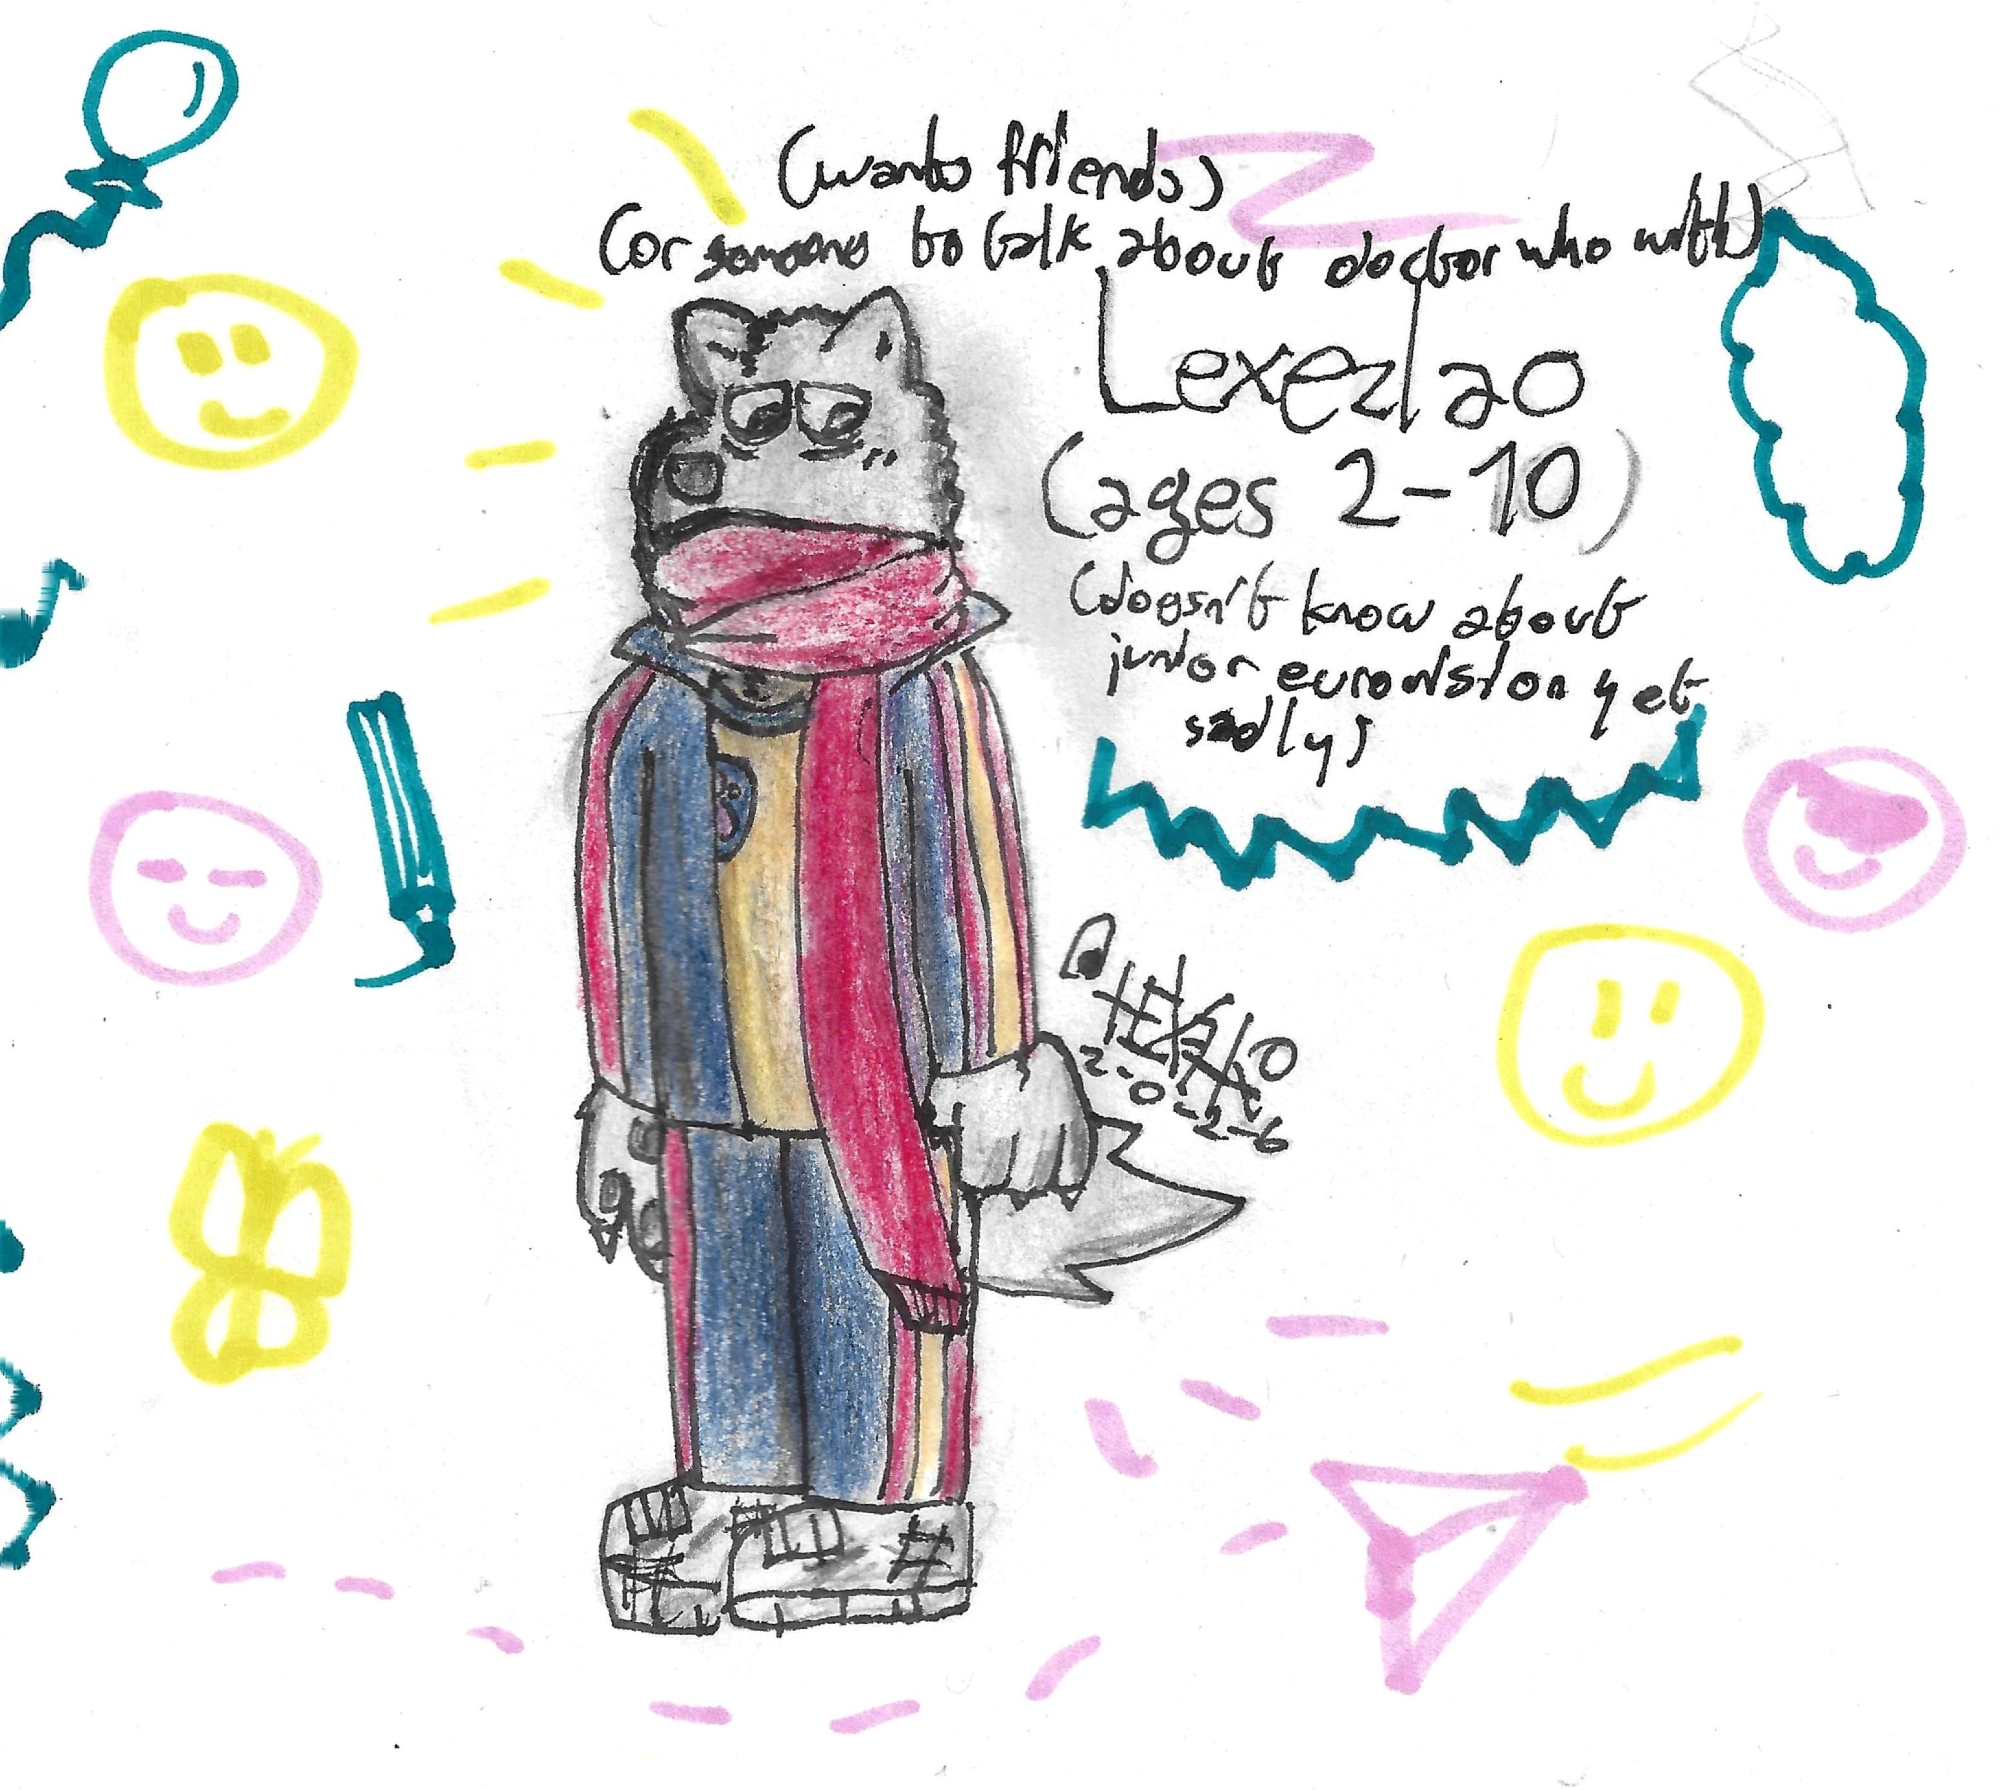 (wants friends)
(or someone to talk about doctor who with)
Lexezlao
(ages 2-10)
(doesn't know about
junior eurovision yet
sadly)
2-0-2-6